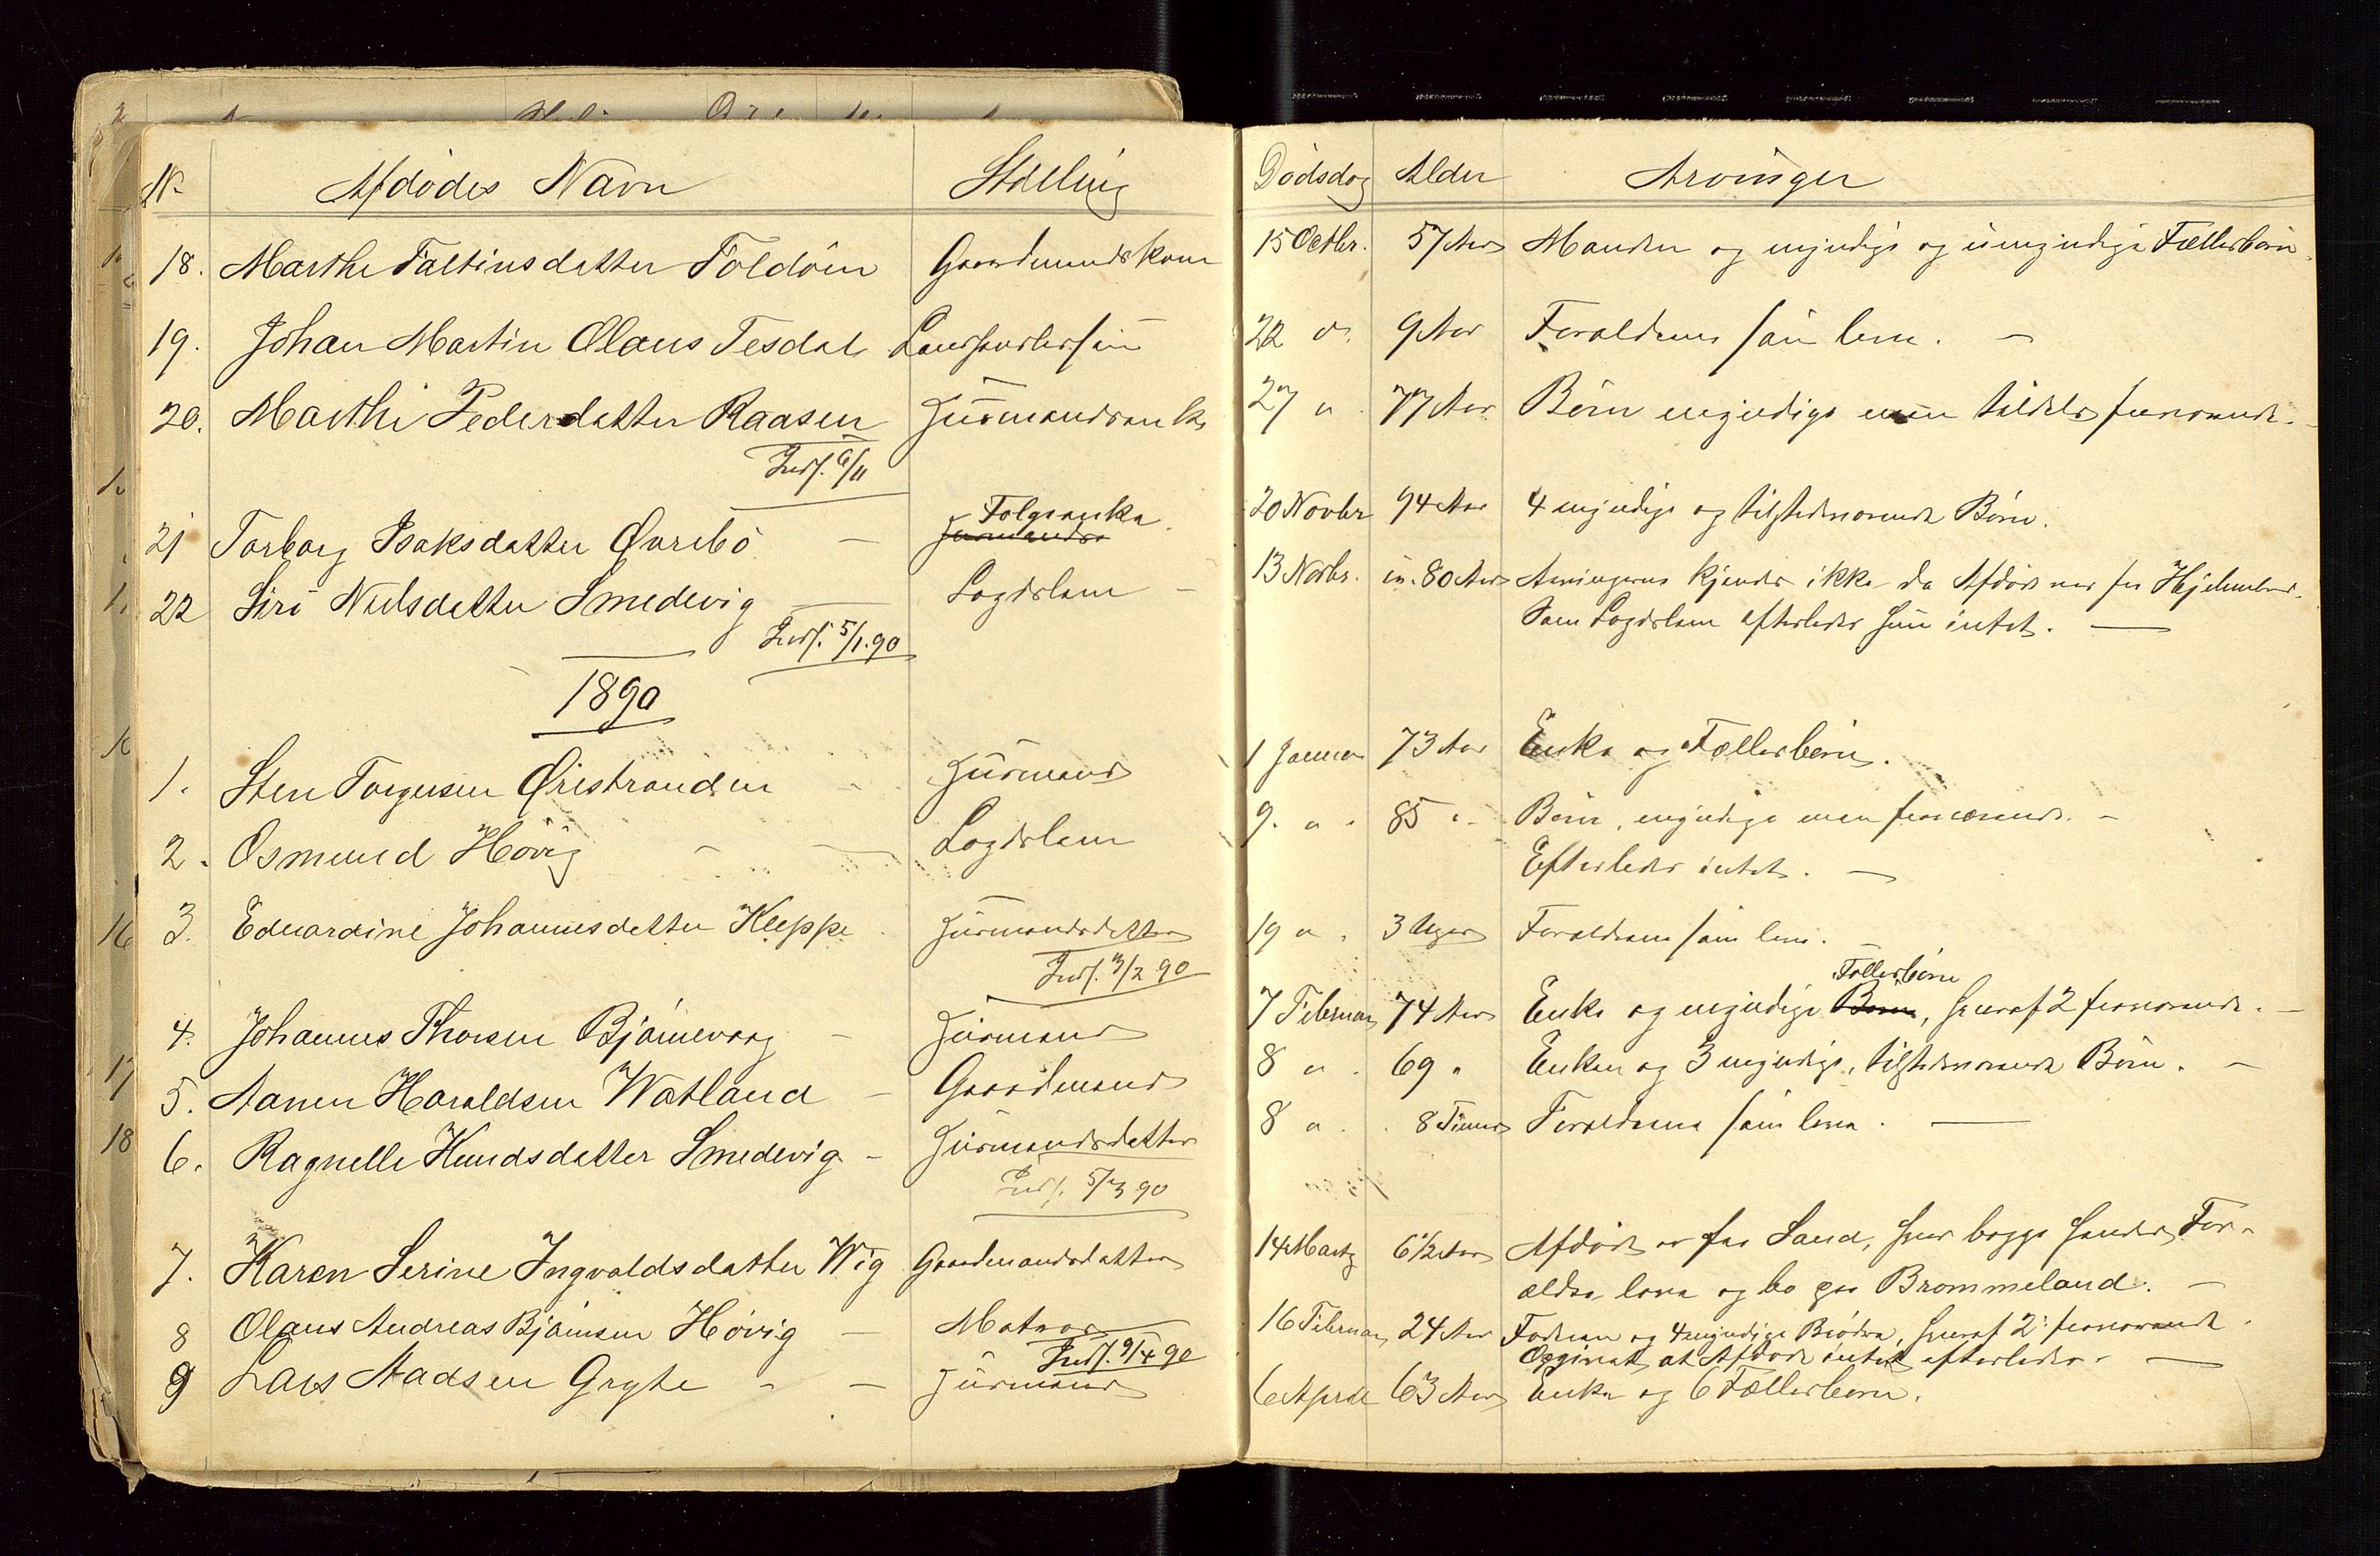 N.
Afdødes Navn
Stilling
18. Marthe Faltinsdatter Foldøen Gaardmandskone
19. Johan Martin Olaus Tesdal Landhandlersøn
20. Marthe Pedersdatter Raasen Huusmandsenke
Indf. 6/11
Folgeenke
21 Torborg Isaksdatter Øvrebø — Huusmands
22 Siri Nielsdatter Smedevig — Lægdslem —
Indf. 5/1.90
1890
1. Sten Torgersen Østrestranden - Huusmand
2. Osmund Høvig - — Lægdslem
3. Edvardine Johannesdatter Kleppe Huusmandsdatter
Indf. 3/2 90
4. Johannes Thorsen Bjørnevaag - Huusmand
5. Aanen Haraldsen Watland - Gaardmand
6. Ragnelle Knudsdatter Smedevig - Huusmandsdatter
Indf. 5/3 90
7. Karen Serine Ingvaldsdatter Wig Gaardmandsdatter
8 Olaus Andreas Bjørnsen Høvig — Matros
Indf. 9/4 90
9 Lars Aadsen Gryte - — Huusmand
Dødsdag Alder Arvinger
15 Octbr. 57 Aar Manden og myndige og umyndige Fællesbørn.
22 d. 9 Aar Forældrene som leve. —
27 " 77 Aar Børn myndige men tildels fraværende. -
20 Novbr 94 Aar 4 myndige og tilstedeværende Børn.
13 Novbr. 80 Aar Arvingerne kjendes ikke da Afdøde var fra Hjelmeland.
Som Lægdslem efterlader hun intet. —
1 Januar 73 Aar Enke og Fællesbørn.
9. " . 85 " - Børn, myndige men fraværende. -
Efterlader intet. —
19 " . 3 Uger Forældrene som leve. -
Fællesbørn
7 Februar 74 Aar Enke og myndige Børn, hvoraf 2 fraværende. -
8 " . 69 " Enken og 3 myndige, tilstedeværende Børn. -
8 " . 8 Timer Forældrene som leve. —
14 Marts 6 1/2 Aar Afdøde er fra Sand, hvor begge hendes For-
ældre leve og bo paa Brommeland. —
16 Februar 24 Aar Forældre og 4 myndige Brødre, hvoraf 2 fraværende.
Opgivet at Afdøde intet efterlader. —
6 April 63 Aar Enke og 6 Fællesbørn.